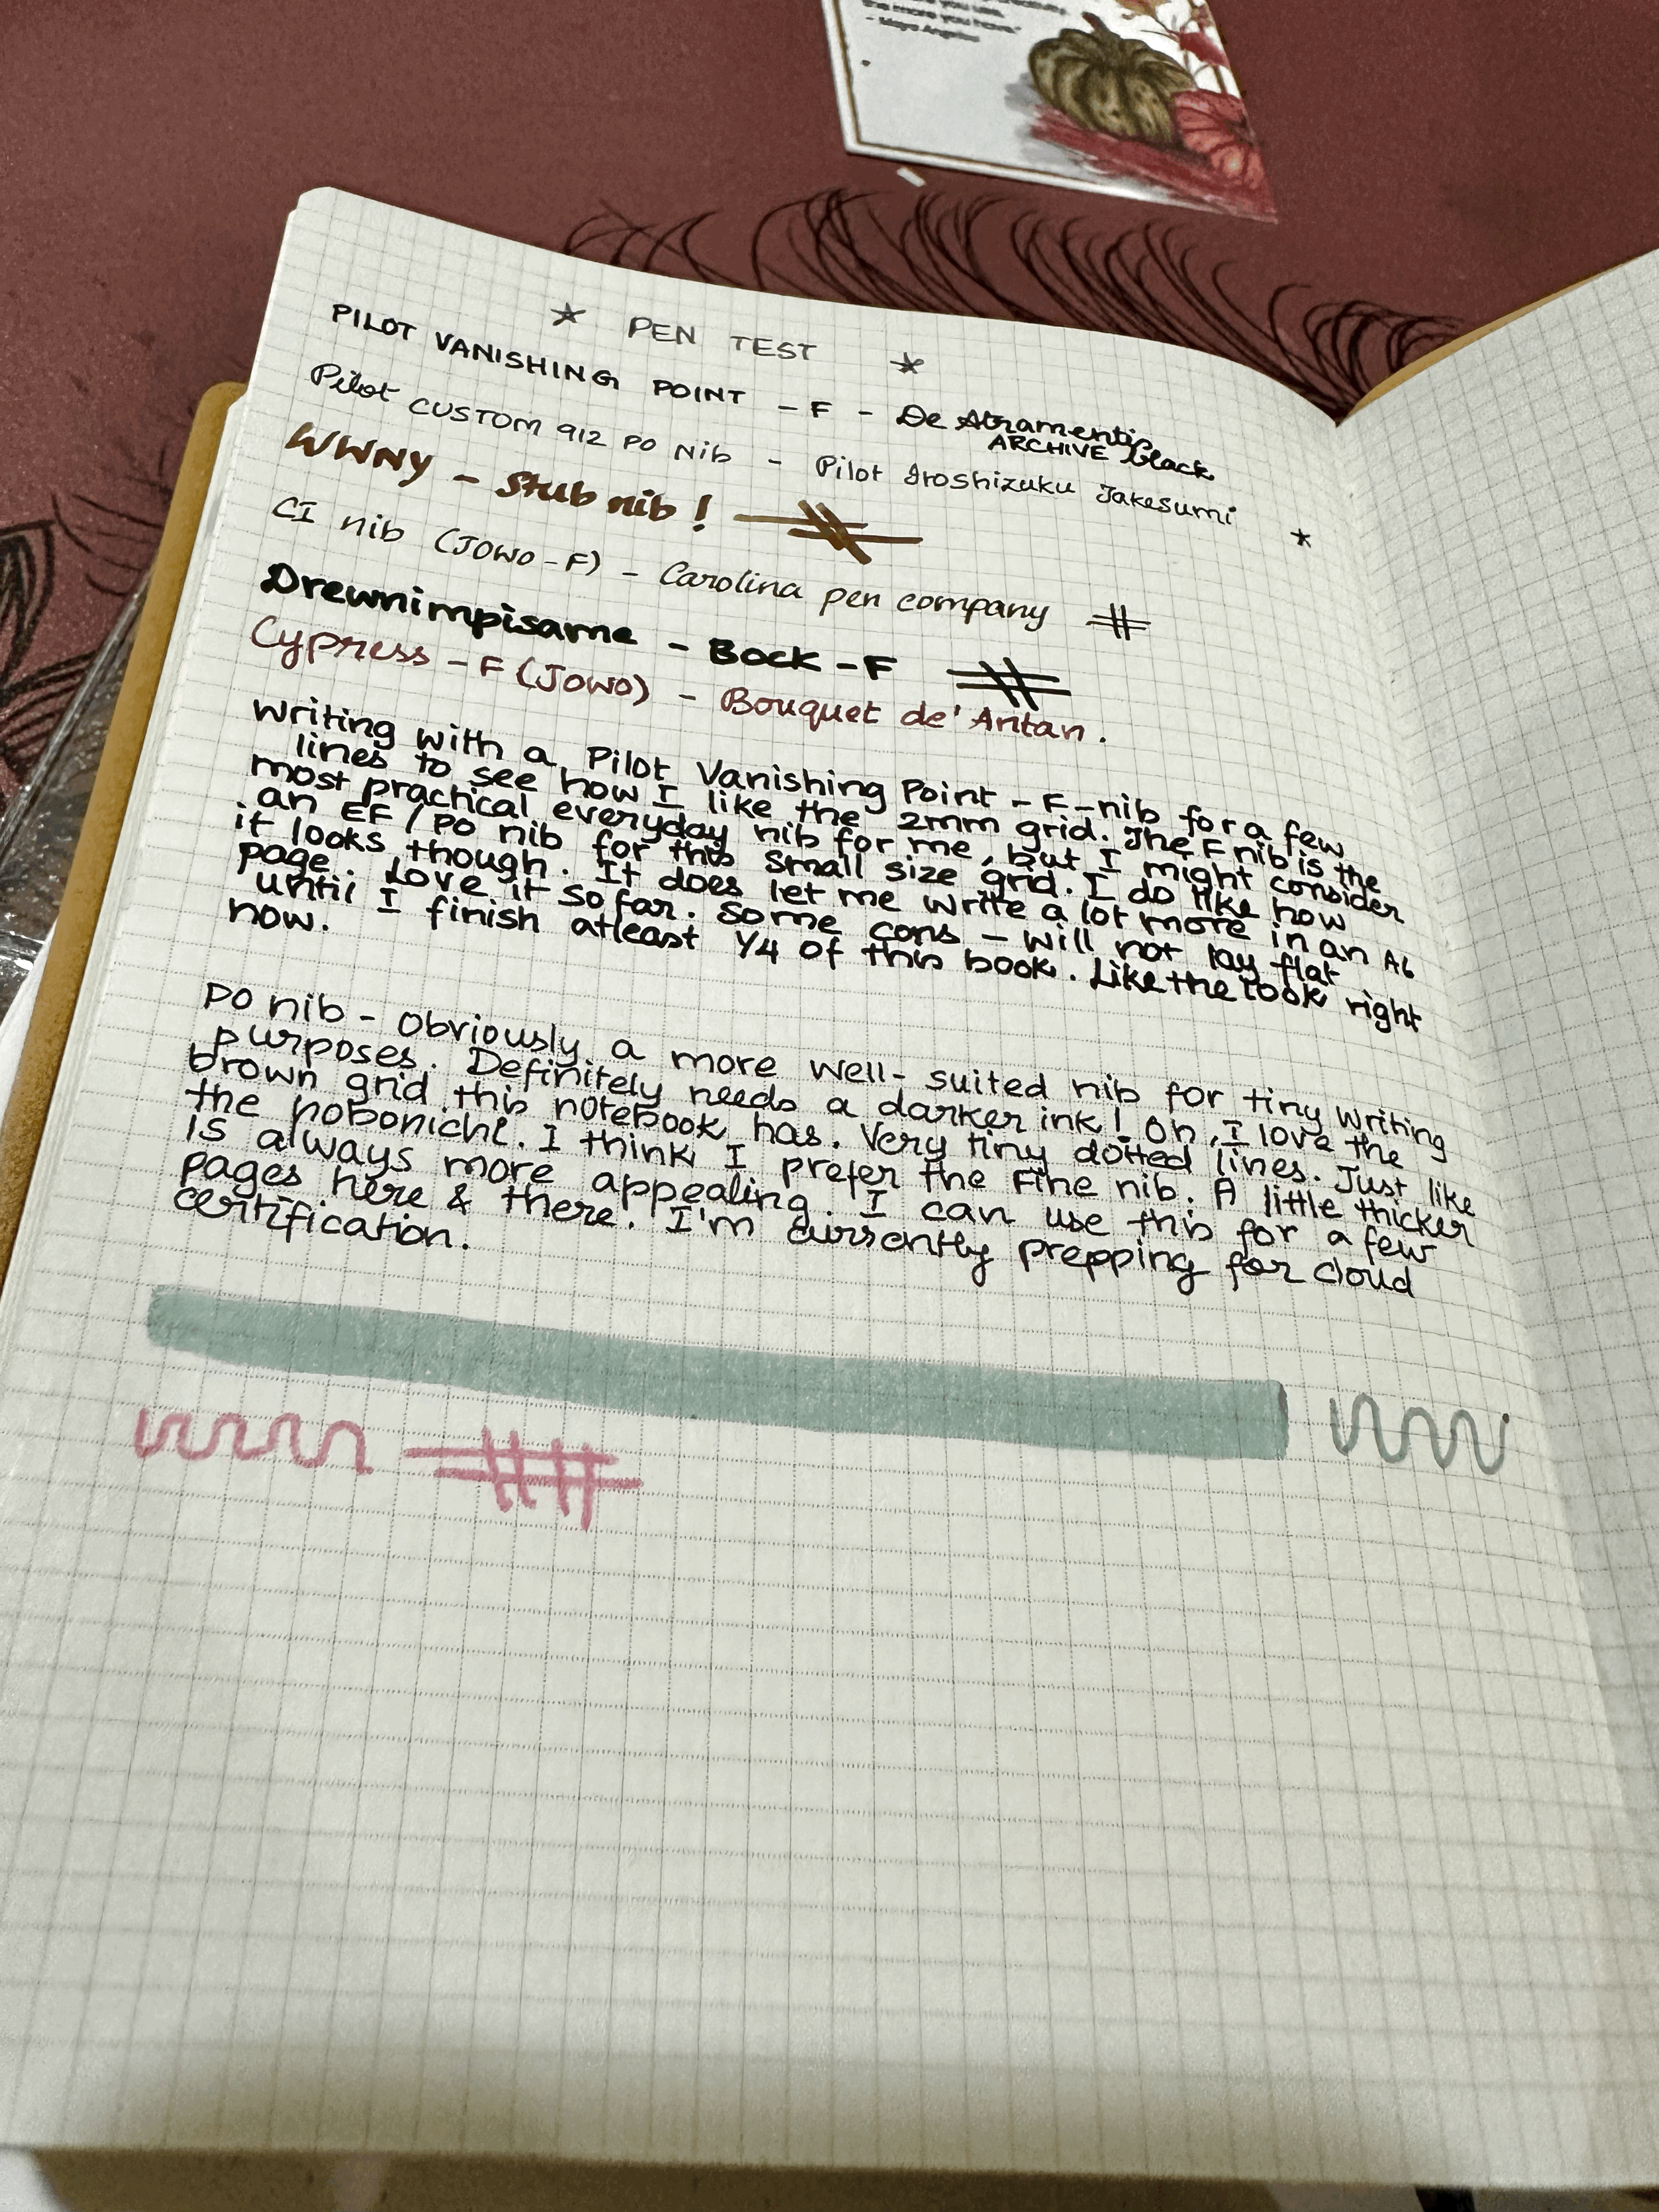 the more you have."
- Maya Angelou
PEN TEST
PILOT VANISHING POINT - F - De Atramentis
ARCHIVE black
Pilot CUSTOM 912 PO Nib - Pilot Iroshizuku Takesumi
WWNY - Stub nib!
CI nib (JOWO-F) - Carolina pen company
Drewnimpisame - Bock - F
Cypress - F (JOWO) - Bouquet de' Antan.
Writing with a Pilot Vanishing Point - F-nib for a few
lines to see how I like the 2mm grid. The F nib is the
most practical everyday nib for me, but I might consider
an EF / PO nib for this small size grid. I do like how
it looks though. It does let me write a lot more in an A6
page. Love it so far. Some cons - will not lay flat
until I finish atleast 1/4 of this book. Like the look right
now.
PO nib - Obviously a more well-suited nib for tiny writing
purposes. Definitely needs a darker ink! Oh, I love the
brown grid this notebook has. Very tiny dotted lines. Just like
the hobonichi. I think I prefer the Fine nib. A little thicker
is always more appealing. I can use this for a few
pages here & there. I'm currently prepping for cloud
certification.